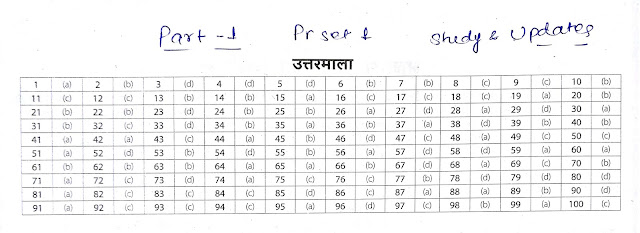 Part-1 Pr set 1 Study & Updates
उत्तरमाला
1 (a) 2 (b) 3 (d) 4 (d) 5 (d) 6 (b) 7 (b) 8 (c) 9 (c) 10 (b)
11 (c) 12 (c) 13 (b) 14 (b) 15 (a) 16 (c) 17 (c) 18 (c) 19 (a) 20 (b)
21 (b) 22 (b) 23 (d) 24 (b) 25 (b) 26 (a) 27 (d) 28 (a) 29 (d) 30 (a)
31 (b) 32 (c) 33 (d) 34 (b) 35 (a) 36 (b) 37 (a) 38 (d) 39 (b) 40 (b)
41 (a) 42 (a) 43 (c) 44 (a) 45 (b) 46 (d) 47 (c) 48 (a) 49 (c) 50 (c)
51 (a) 52 (d) 53 (b) 54 (b) 55 (b) 56 (a) 57 (d) 58 (d) 59 (a) 60 (a)
61 (b) 62 (b) 63 (b) 64 (a) 65 (a) 66 (b) 67 (d) 68 (a) 69 (c) 70 (b)
71 (a) 72 (c) 73 (d) 74 (a) 75 (c) 76 (c) 77 (b) 78 (d) 79 (d) 80 (d)
81 (a) 82 (c) 83 (c) 84 (c) 85 (d) 86 (c) 87 (a) 88 (a) 89 (b) 90 (d)
91 (a) 92 (c) 93 (c) 94 (c) 95 (a) 96 (d) 97 (c) 98 (b) 99 (a) 100 (c)